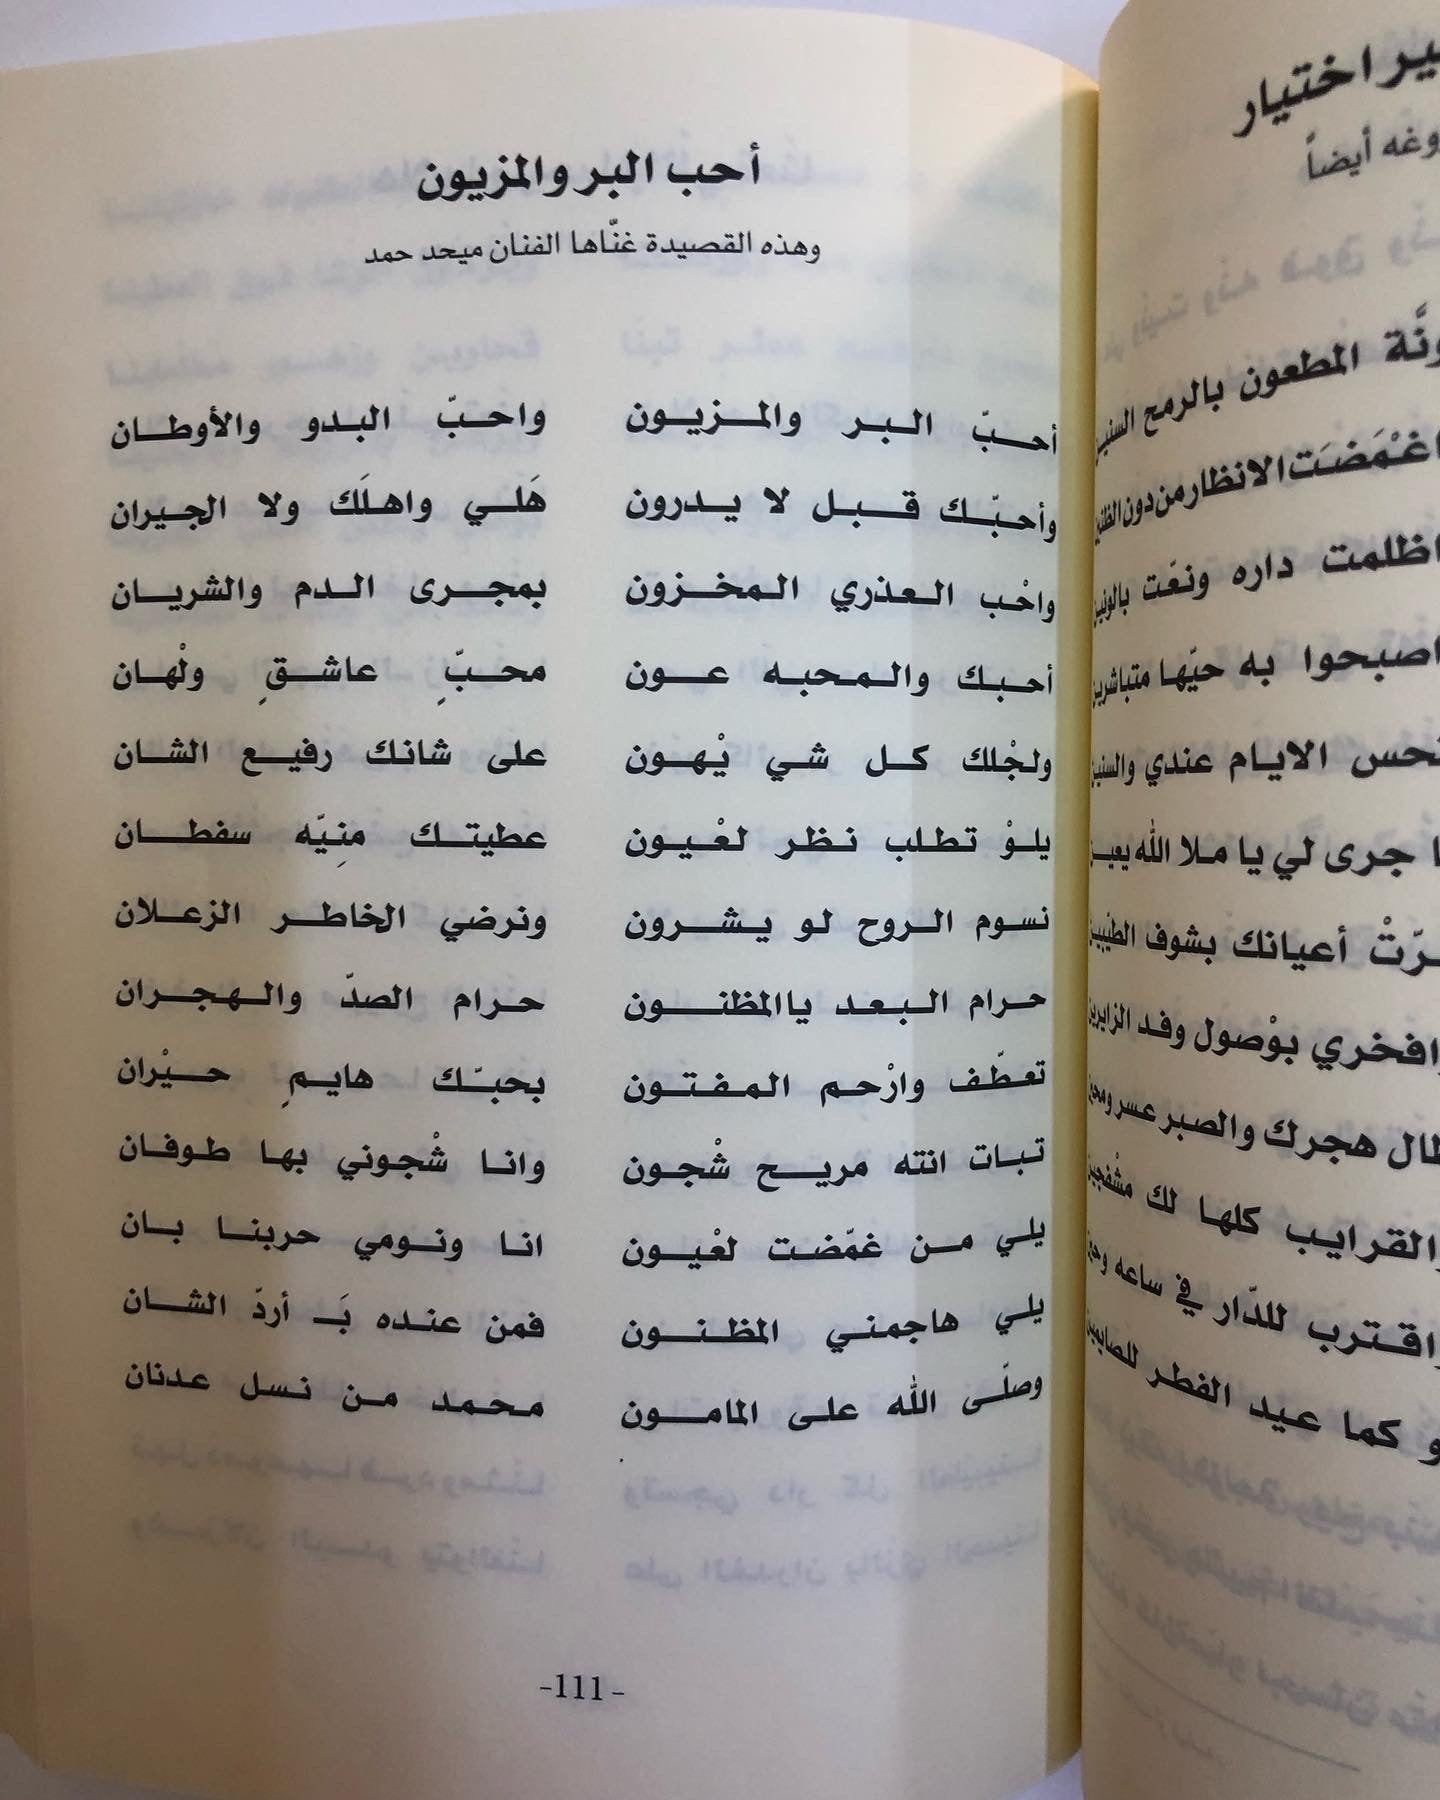 أحب البر والمزيون
وهذه القصيدة غنّاها الفنان ميحد حمد
أحبّ البر والمزيون واحبّ البدو والأوطان
وأحبّك قبل لا يدرون هَلي واهلَك ولا الجيران
واحْب العذري المخزون بمجرى الدم والشريان
أحبك والمحبه عون محبٍّ عاشقٍ ولْهان
ولجْلك كل شي يْهون على شانك رفيع الشان
يلوْ تطلب نظر لعْيون عطيتك منِيّه سفطان
نسوم الروح لو يشرون ونرضي الخاطر الزعلان
حرام البعد يالمظنون حرام الصدّ والهجران
تعطّف وارْحم المفتون بحبّك هايمٍ حيْران
تبات انته مريح شْجون وانا شْجوني بها طوفان
يلي من غمّضت لعْيون انا ونومي حربنا بان
يلي هاجمني المظنون فمن عنده بَـ أردّ الشان
وصلّى الله على المامون محمد من نسل عدنان
-111-
ير اختيار
وغه أيضاً
ونَّة المطعون بالرمح السنين
اغْمَضَت الانظار من دون الظنين
اظلمت داره ونعّت بالونين
اصبحوا به حيّها متباشرين
نحس الايام عندي والسنين
جرى لي يا ملا الله يعين
أعيانك بشوف الطيّبين
افخري بوْصول وفد الزايرين
طال هجرك والصبر عسر
والقرايب كلها لك مشْفجين
واقترب للدّار في ساعه
كما عيد الفطر للصايمين